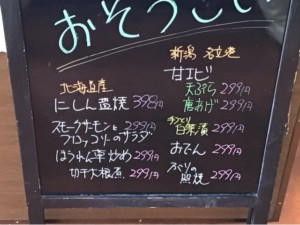 おそうざい
北海道産
にしん塩焼 398円
スモークサーモンと
ブロッコリーのサラダ 299円
ほうれん草炒め 299円
切干大根煮 299円
新潟 名立港
甘エビ
天ぷら 299円
唐あげ 299円
手づくり
白菜漬 299円
おでん 299円
ぶりの
照焼 299円